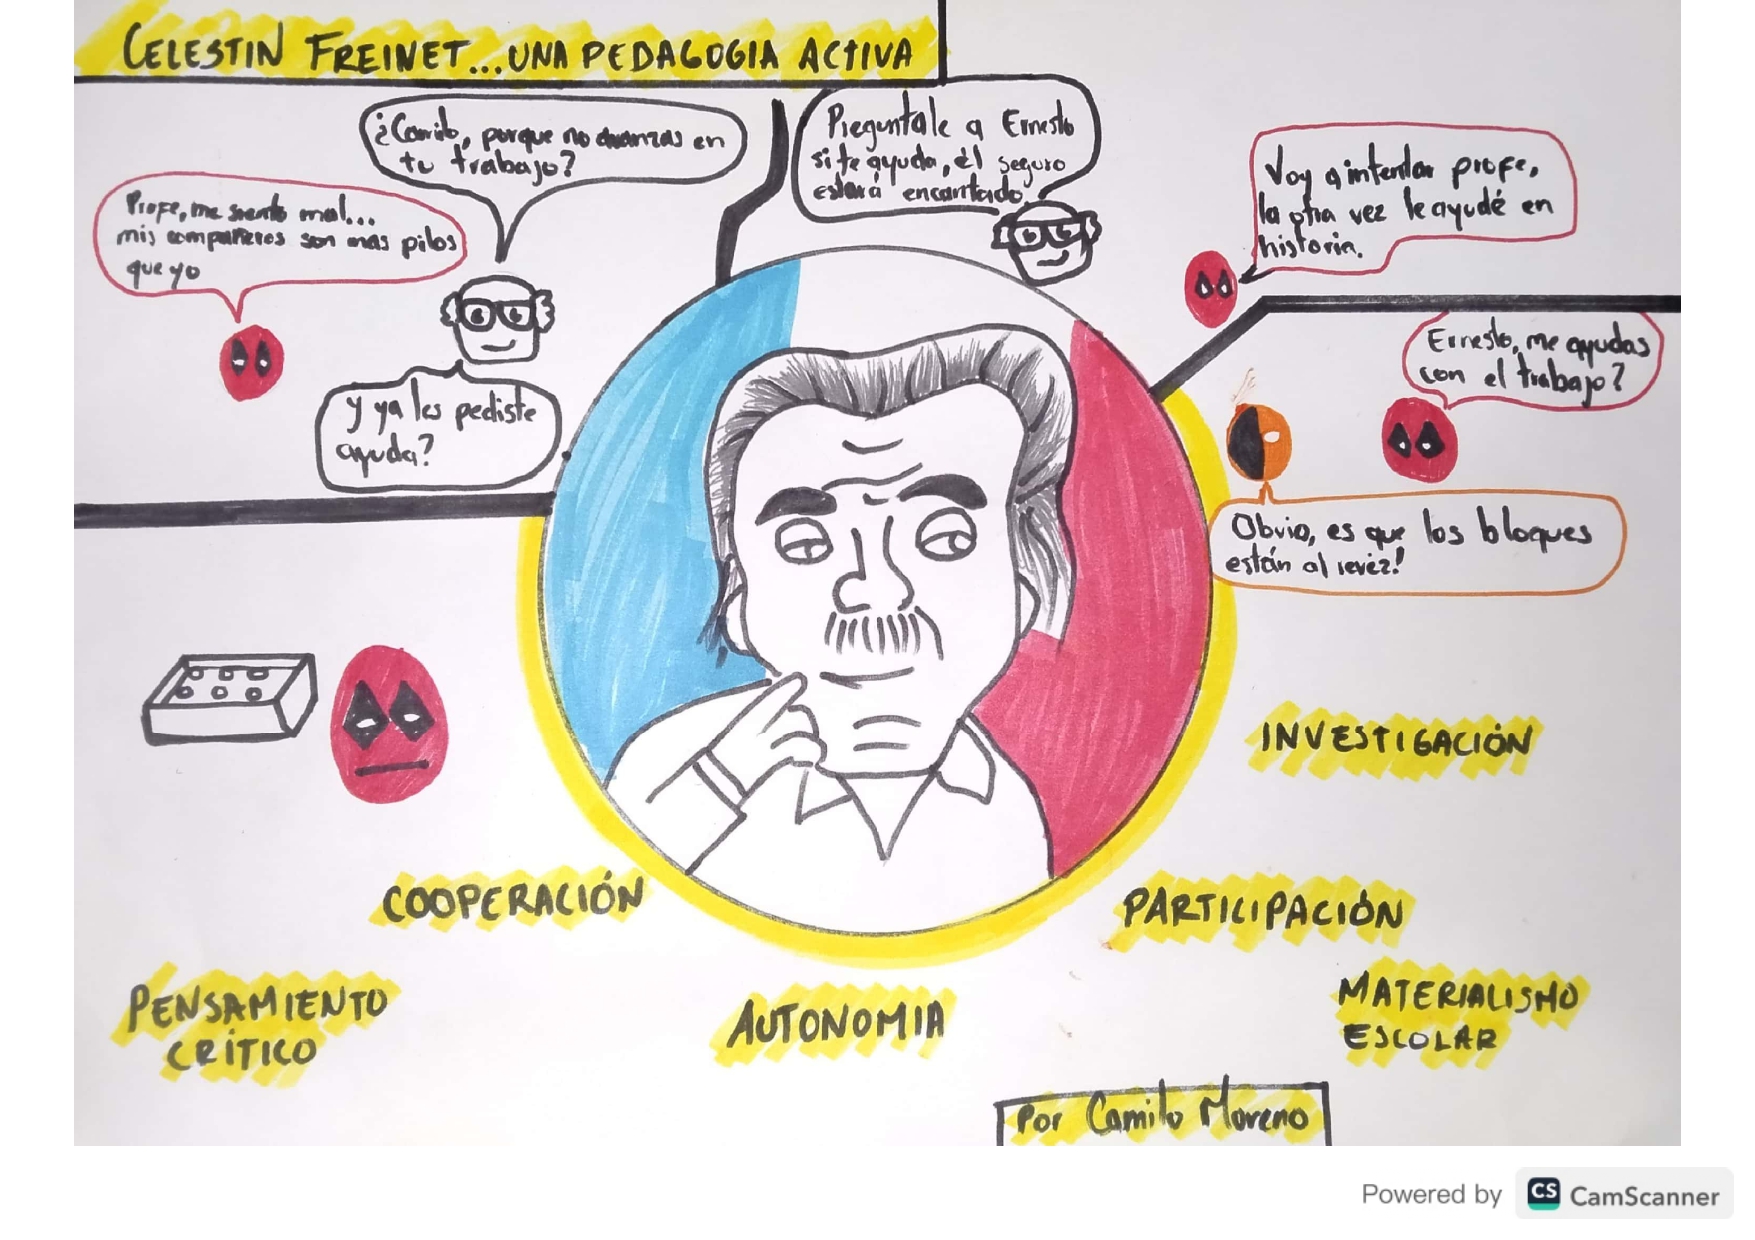 CELESTIN FREINET...UNA PEDAGOGIA ACTIVA
¿Camilo, porque no avanzas en
tu trabajo?
Profe, me siento mal...
mis compañeros son mas pilos
que yo
y ya les pediste
ayuda?
Preguntale a Ernesto
si te ayuda, él seguro
estará encantado.
Voy a intentar profe,
la otra vez le ayudé en
historia.
Ernesto, me ayudas
con el trabajo?
Obvio, es que los bloques
están al revez!
INVESTIGACIÓN
COOPERACIÓN
PARTICIPACIÓN
PENSAMIENTO
CRÍTICO
AUTONOMIA
MATERIALISMO
ESCOLAR
Por Camilo Moreno
Powered by CS CamScanner